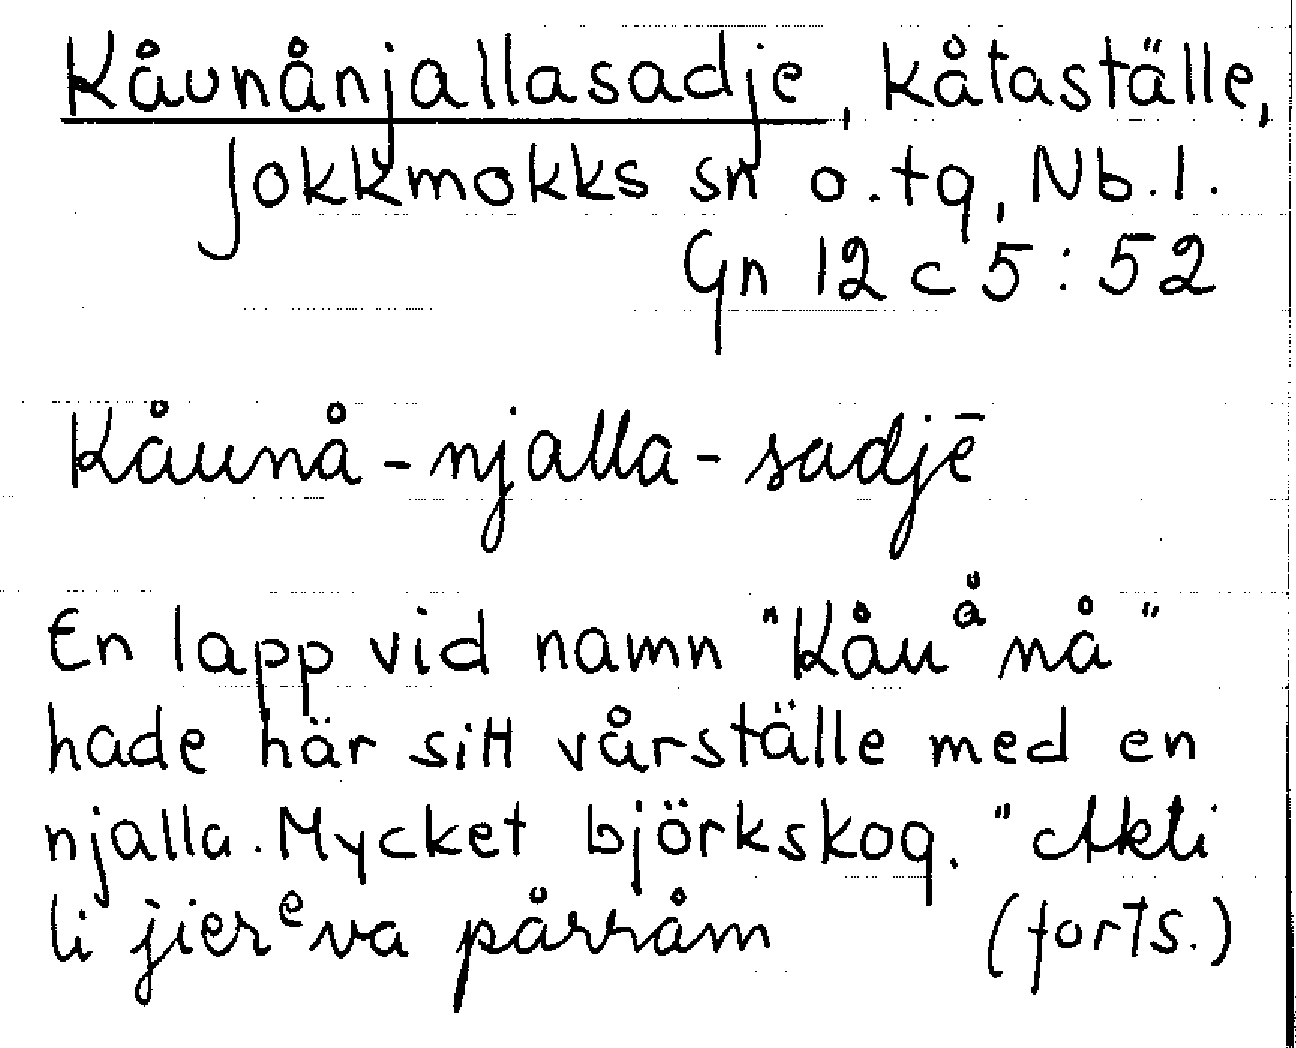 Kåunånjallasadje, kåtaställe,
Jokkmokks sn o. tg, Nb. l.
Gn 12 c 5:52
Kåunå-njalla-sadjē
En lapp vid namn "Kåuånå"
hade här sitt vårställe med en
njalla. Mycket björkskog. "Akti
li jierᵉva pårråm (forts.)